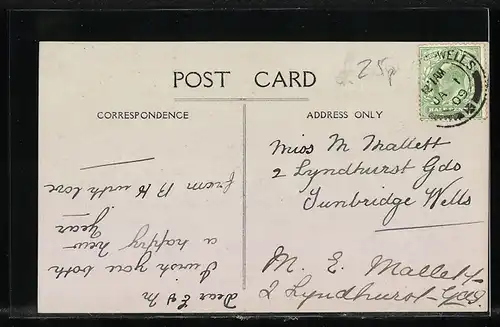 25p
POST CARD
CORRESPONDENCE
ADDRESS ONLY
WELLS
JA 1
09
Miss M Mallett
2 Lyndhurst Gds
Tunbridge Wells
M. E. Mallett
2 Lyndhurst Gds.
Dear E & M
I wish you both
a happy new
year
from B H with love